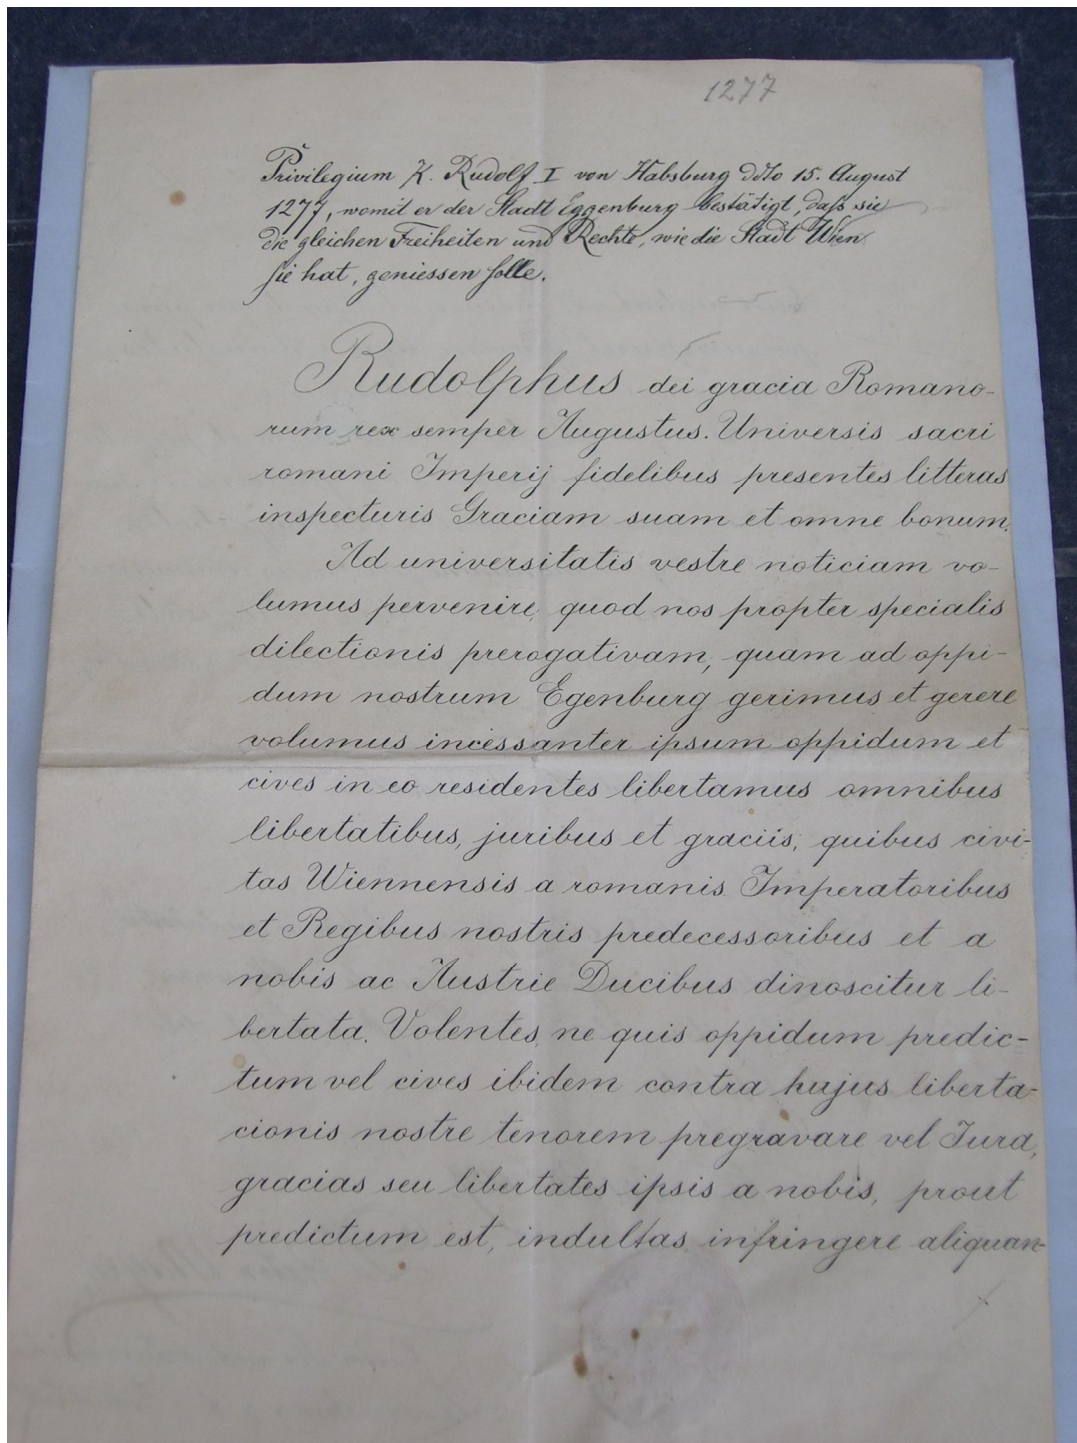 1277
Privilegium K. Rudolf I von Habsburg ddto 15. August
1277, womit er der Stadt Eggenburg bestätigt, daß sie
die gleichen Freiheiten und Rechte, wie die Stadt Wien
sie hat, geniessen solle.
Rudolphus dei gracia Romano-
rum rex semper Augustus. Universis sacri
romani Imperij fidelibus presentes litteras
inspecturis Graciam suam et omne bonum.
Ad universitatis vestre noticiam vo-
lumus pervenire, quod nos propter specialis
dilectionis prerogativam, quam ad oppi-
dum nostrum Egenburg gerimus et gerere
volumus incessanter ipsum oppidum et
cives in eo residentes libertamus omnibus
libertatibus, juribus et graciis, quibus civi-
tas Wiennensis a romanis Imperatoribus
et Regibus nostris predecessoribus et a
nobis ac Austrie Ducibus dinoscitur li-
bertata. Volentes, ne quis oppidum predic-
tum vel cives ibidem contra hujus liberta-
cionis nostre tenorem pregravare vel Jura,
gracias seu libertates ipsis a nobis, prout
predictum est, indultas infringere aliquan-